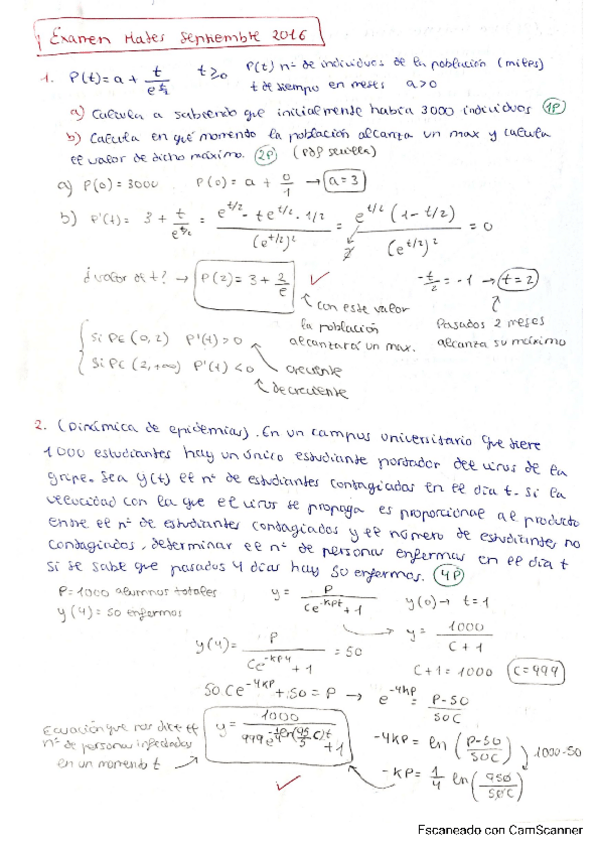 Examen Mates Septiembre 2016
1. P(t) = a + t/e^(t/2)  t ≥ 0  P(t) nº de individuos de la población (miles)
t de tiempo en meses  a > 0
a) Calcula a sabiendo que inicialmente había 3000 individuos (1P)
b) Calcula en qué momento la población alcanza un max y calcula
el valor de dicho máximo. (2P) (PDP sevilla)
a) P(0) = 3000  P(0) = a + 0/1 → a = 3
b) P'(t) = 3 + t/e^(t/2) = (e^(t/2) - t e^(t/2) · 1/2)/(e^(t/2))² = (e^(t/2) (1 - t/2))/(e^(t/2))² = 0
¿valor de t? → P(2) = 3 + 2/e ✓  -t/2 = -1 → t = 2
con este valor
la población
alcanzará un max.
Pasados 2 meses
alcanza su máximo
Si P∈ (0, 2) P'(t) > 0
Si P∈ (2, +∞) P'(t) < 0
creciente
decreciente
2. (Dinámica de epidemias). En un campus universitario que tiene
1000 estudiantes hay un único estudiante portador del virus de la
gripe. Sea y(t) el nº de estudiantes contagiados en el día t. Si la
velocidad con la que el virus se propaga es proporcional al producto
entre el nº de estudiantes contagiados y el número de estudiantes no
contagiados, determinar el nº de personas enfermas en el día t
si se sabe que pasados 4 días hay 50 enfermos. (4P)
P = 1000 alumnos totales  y = P/(Ce^(-kPt) + 1)  y(0) → t = 1
y(4) = 50 enfermos  y = 1000/(C + 1)
y(4) = P/(Ce^(-kP4) + 1) = 50
C + 1 = 1000  C = 999
50 Ce^(-4kP) + 50 = P → e^(-4kP) = (P - 50)/50C
Ecuación que nos dice el
nº de personas infectadas
en un momento t
y = 1000/(999 e^
+ 1)
-4kP = ln ((P - 50)/50C)  1000 - 50
-kP = 1/4 ln (950/50C)
✓
Escaneado con CamScanner